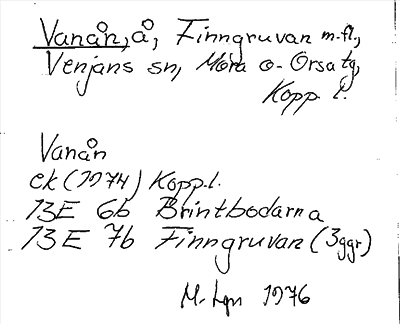 Vanån, å, Finngruvan m.fl.,
Venjans sn, Mora o. Orsa tg,
Kopp. l.
Vanån
ek (1974) Kopp. l.
13E 6b Brintbodarna
13E 7b Finngruvan (3ggr)
1976